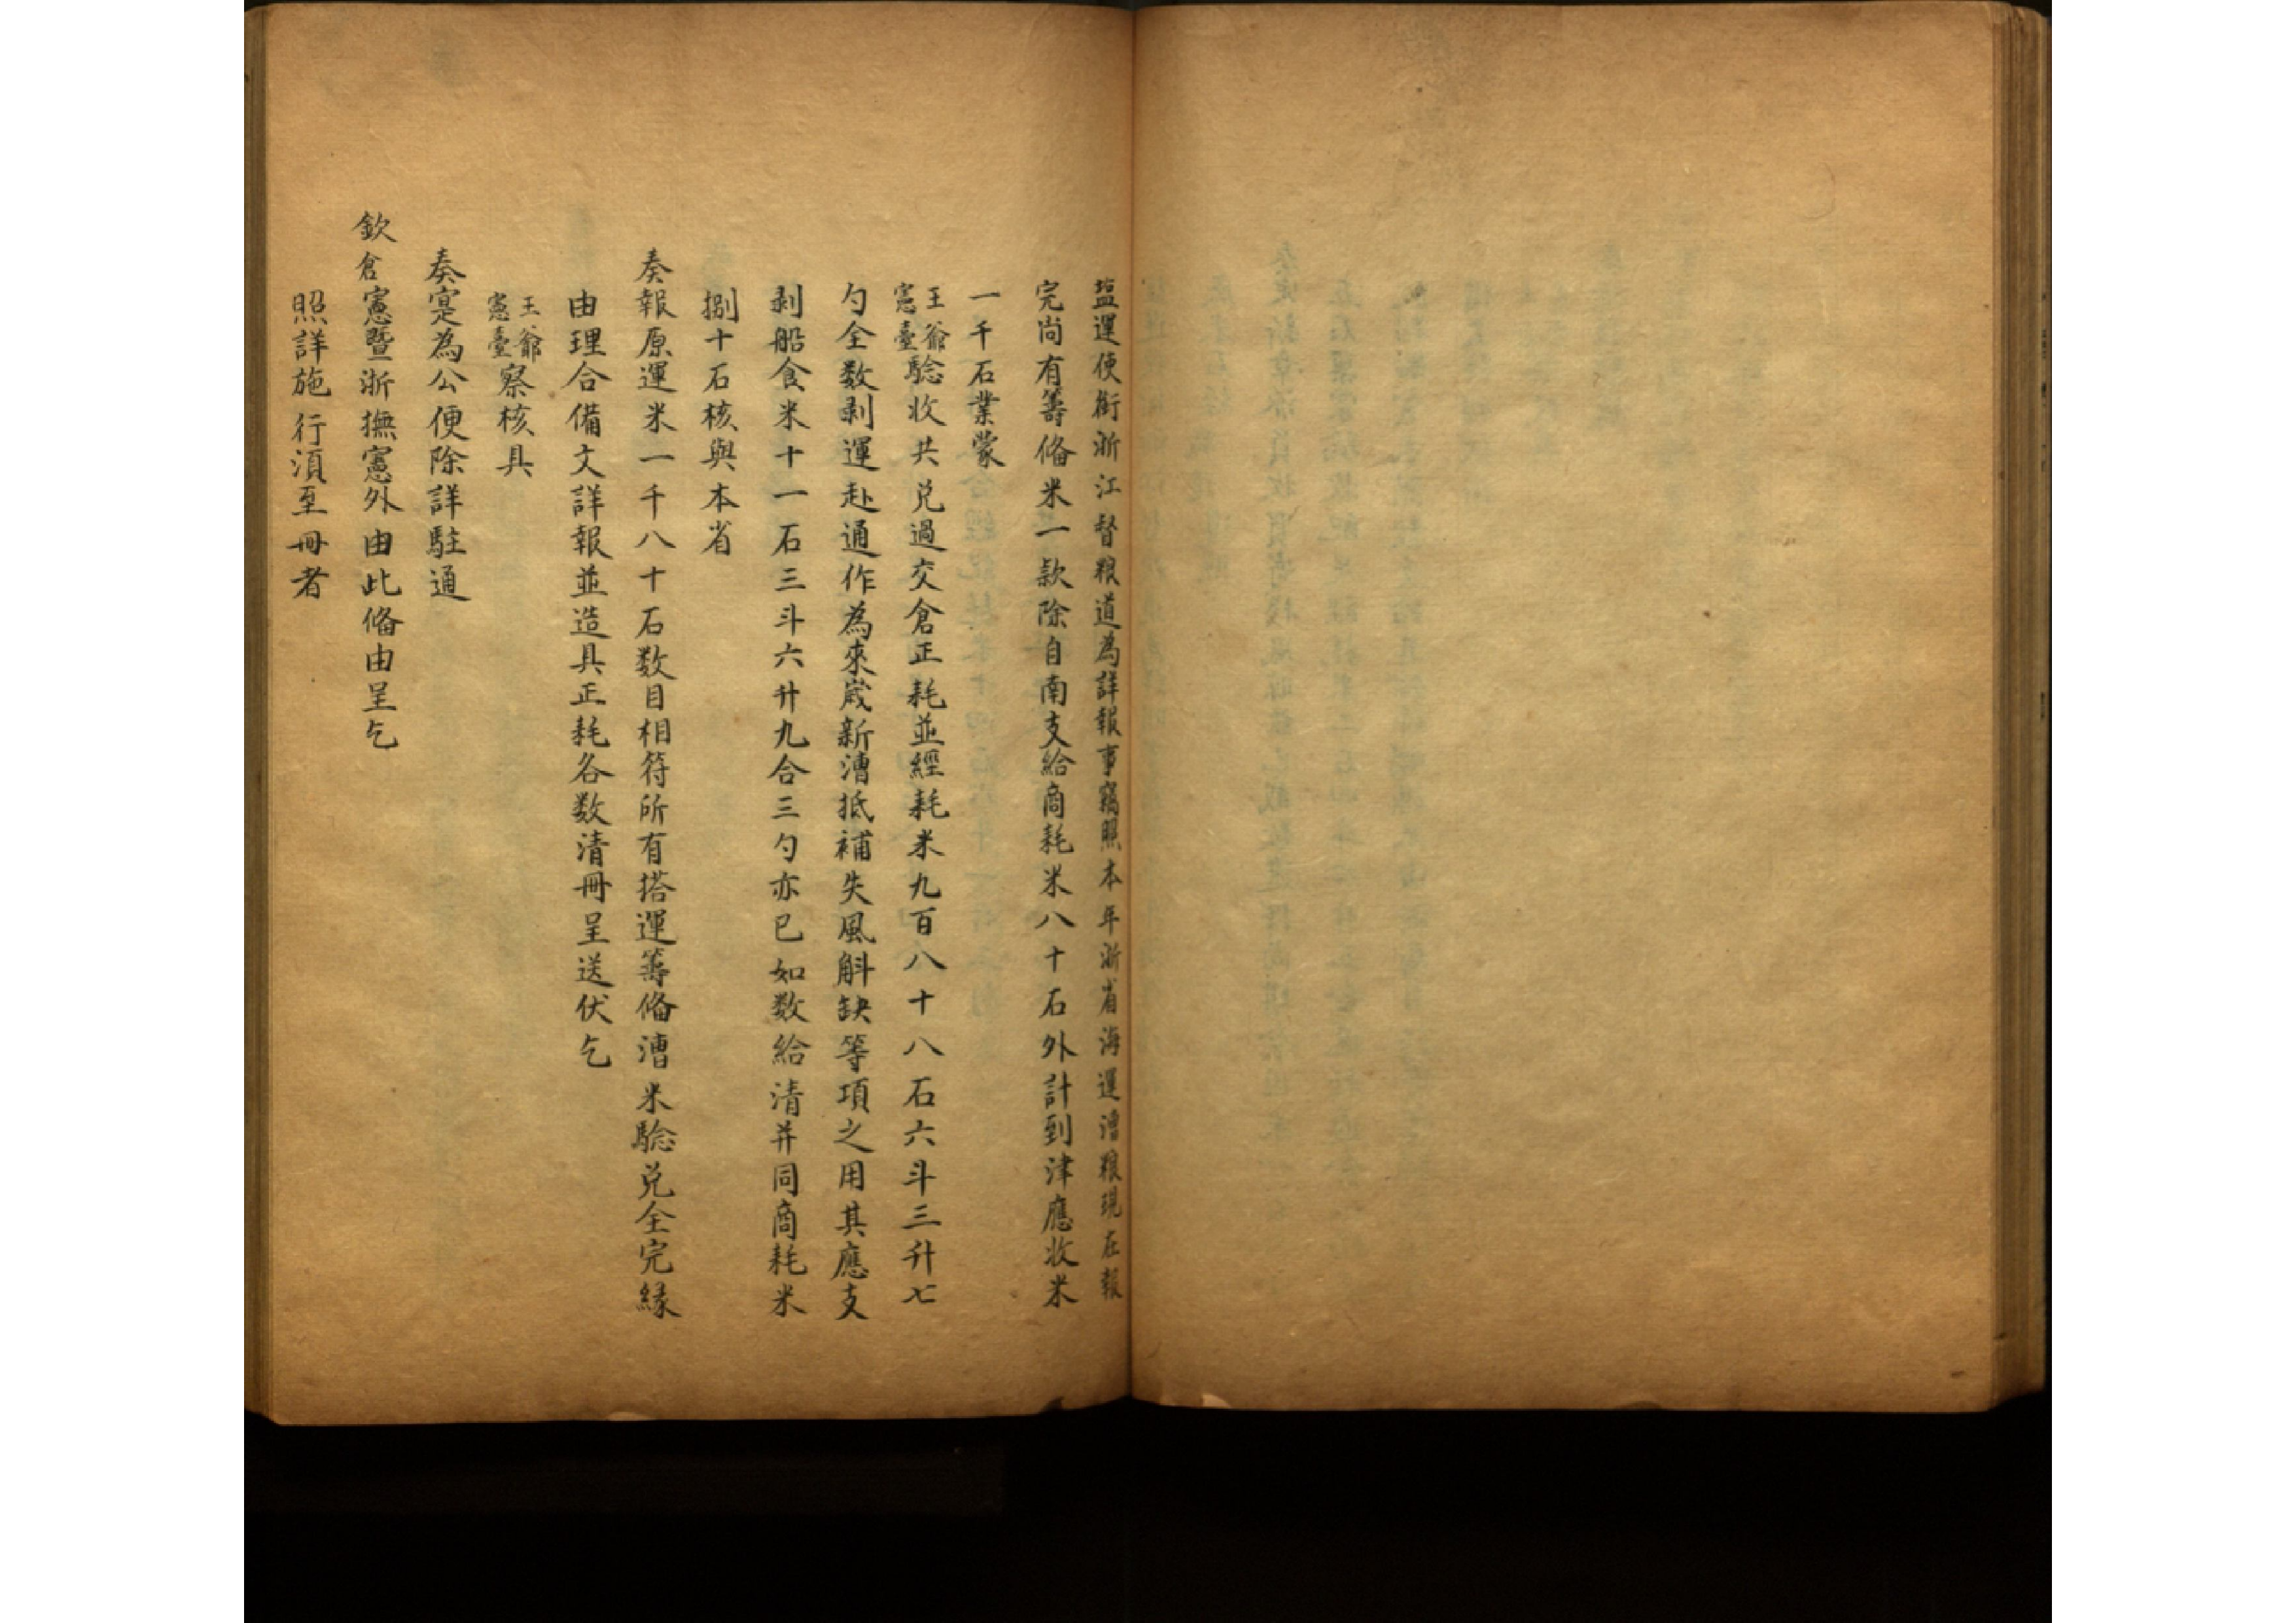 塩運使銜浙江督粮道為詳報事竊照本年浙省海運漕粮現在報
完尚有籌俻米一款除自南支給商耗米八十石外計到津應收米
一千石業蒙
王爺憲臺驗收共兑過交倉正耗並經耗米九百八十八石六斗三升七
勺全数剥運赴通作為來歳新漕抵補失風斛缺等項之用其應支
剥船食米十一石三斗六升九合三勺亦已如数給清并同商耗米
捌十石核與本省
奏報原運米一千八十石数目相符所有搭運籌俻漕米驗兑全完縁
由理合備文詳報並造具正耗各数清冊呈送伏乞
王爺憲臺察核具
奏寔為公便除詳駐通
欽倉憲暨浙撫憲外由此俻由呈乞
照詳施行湏至冊者